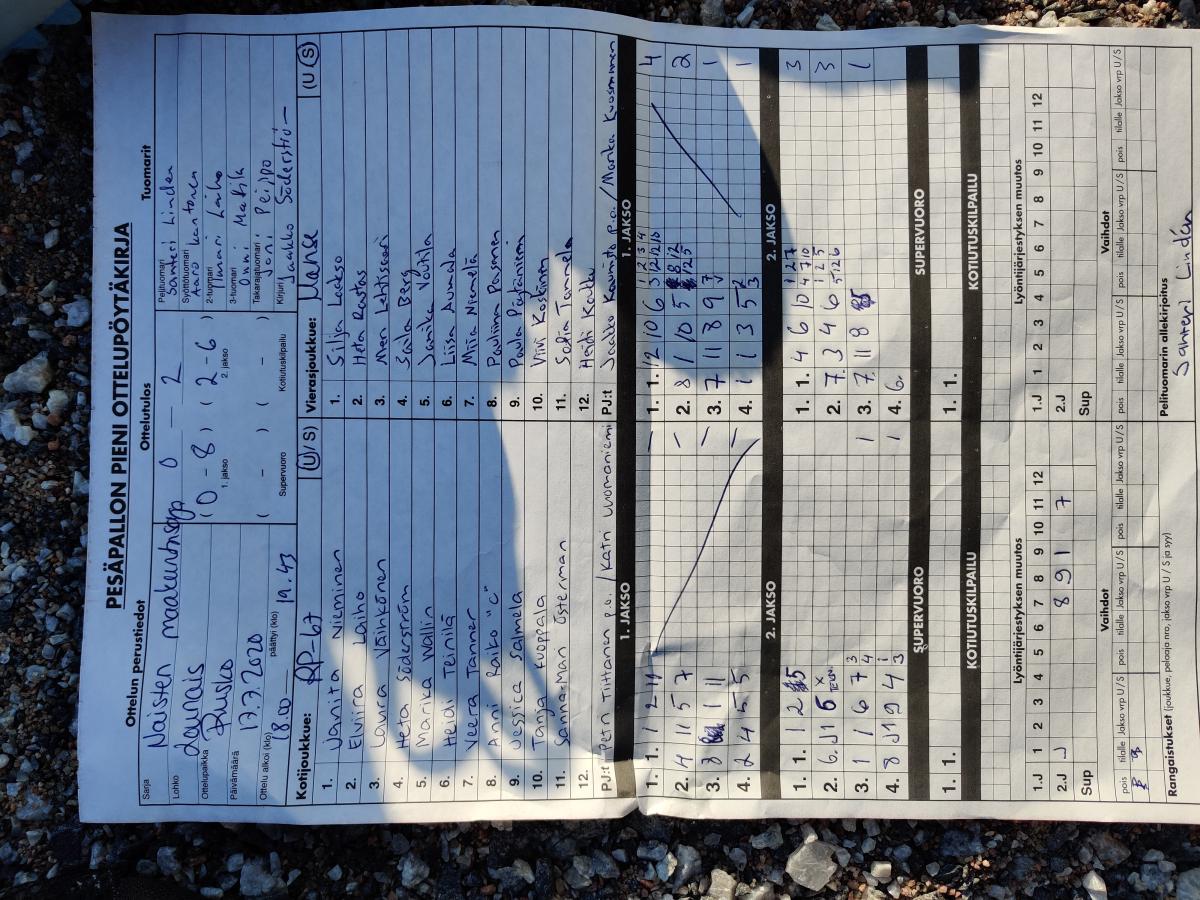 PESÄPALLON PIENI OTTELUPÖYTÄKIRJA
Ottelun perustiedot
Ottelutulos
Tuomarit
Sarja
Naisten
Lohko
Ottelupaikka
Rusko
Päivämäärä
17.7.2020
Ottelu alkoi (klo)
18.00
päättyi (klo)
19.43
0 - 2
(0 - 8) (2 - 6)
1. jakso
2. jakso
( - ) ( - )
Supervuoro
Kotiutuskilpailu
Pelituomari
Santeri Linden
Syöttötuomari
Aaro Kantonen
2-tuomari
Ilmari Laiho
3-tuomari
Onni Mattila
Takarajatuomari
Joni Peippo
Kirjuri
Jaakko Söderstiö
Kotijoukkue: RP-67 (U/S)
1. Janita Nieminen
2. Elviira Laiho
3. Laura Väihkönen
4. Heta Söderström
5. Marika Wallin
6. Heidi Teinilä
7. Veera Tanner
8. Anni Raiko "C"
9. Jessica Salmela
10. Tanja Kuoppala
11. Sanna-Mari Österman
12.
PJ:t Petri Tiittanen p.o. / Katri Vuomaniemi
Vierasjoukkue: Manse (U/S)
1. Silja Laakso
2. Heta Rastas
3. Meri Lehtisaari
4. Saila Berg
5. Janika Voutila
6. Liisa Aumala
7. Miia Niemelä
8. Pauliina Pasanen
9. Paula Pärjäniemi
10. Viivi Koskinen
11. Sofia Tammela
12. Heidi Kaukku
PJ:t Jaakko Kaunisto p.o. / Marika Kuosmanen
1. JAKSO
1. 1. 1 2 11
2. 4 11 5 7
3. 8 1 11
4. 2 4 5 5
1. JAKSO
1. 1. 12 10 6 4
2. 8 1 10 5 2
3. 7 11 8 9 1
4. 1 1 3 5 1
2. JAKSO
1. 1. 1 2
2. 6.
3. 1 1 6 7 1
4. 8 J1 9 4 1
2. JAKSO
1. 1. 4 6 10 3
2. 7. 3 4 6 3
3. 7. 11 8 1
4. 6.
SUPERVUORO
1. 1.
SUPERVUORO
1. 1.
KOTIUTUSKILPAILU
KOTIUTUSKILPAILU
Lyöntijärjestyksen muutos
1 2 3 4 5 6 7 8 9 10 11 12
1.J
2.J J 8 9 1 7
Sup
Lyöntijärjestyksen muutos
1 2 3 4 5 6 7 8 9 10 11 12
1.J
2.J
Sup
Vaihdot
pois tilalle Jakso vrp U/S pois tilalle Jakso vrp U/S pois tilalle Jakso vrp U/S
Vaihdot
pois tilalle Jakso vrp U/S pois tilalle Jakso vrp U/S pois tilalle Jakso vrp U/S
Rangaistukset (joukkue, pelaaja nro, jakso vrp U / S ja syy)
Pelituomarin allekirjoitus
Santeri Lindén